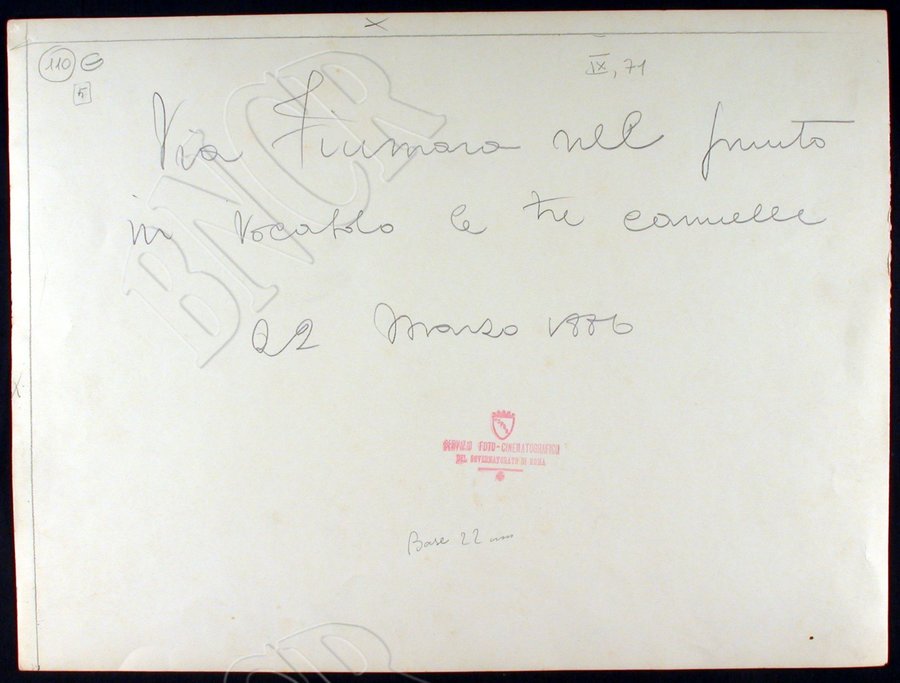 110
5
IX, 71
Via Fiumara nel punto
in vocabolo le tre cannelle
22 Marzo 1886
SERVIZIO FOTO-CINEMATOGRAFICO
DEL GOVERNATORATO DI ROMA
Base 22 cm
BNCR